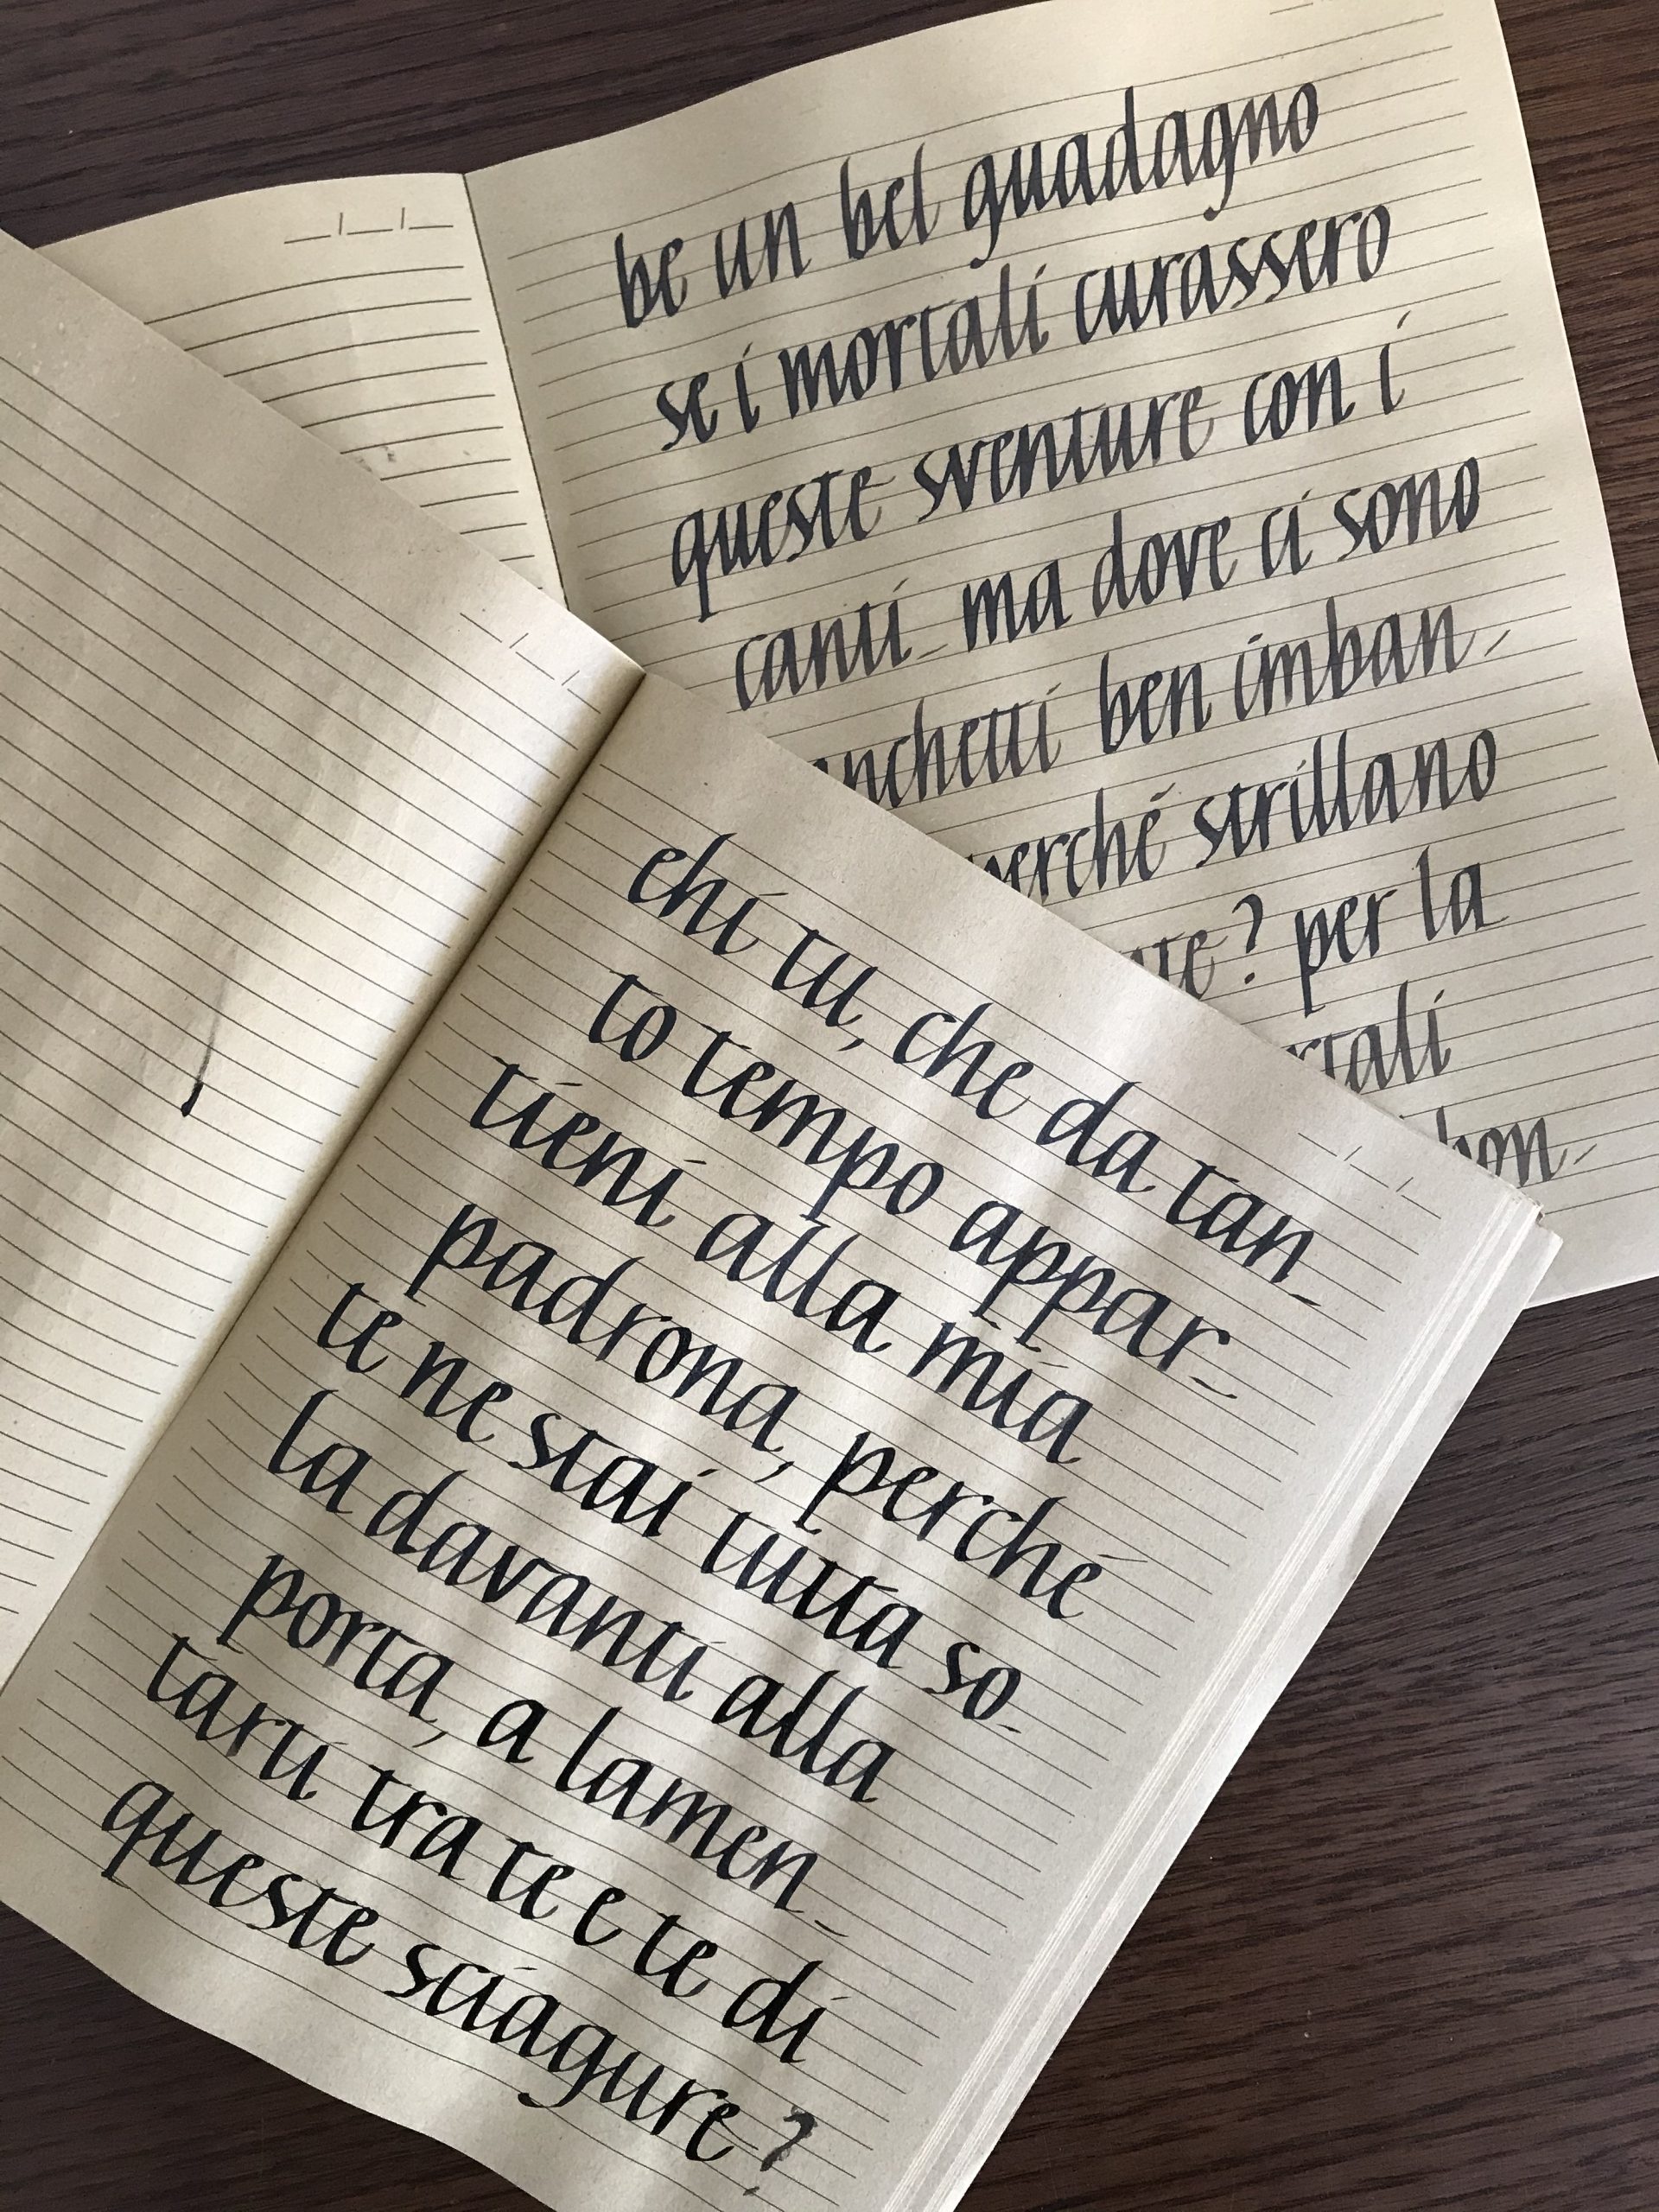 be un bel guadagno
se i mortali curassero
queste sventure con i
canti_ ma dove ci sono
nchetti ben imban-
perché strillano
? per la
rtali
bon-
ehi tu, che da tan_
to tempo appar_
tieni alla mia
padrona, perché
te ne stai tutta so-
la davanti alla
porta, a lamen_
tarti tra te e te di
queste sciagure?